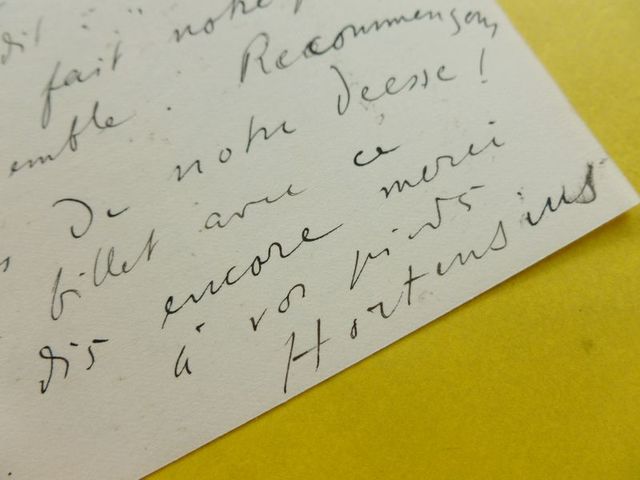 dit à
fait notre
emble. Recommençons
de notre Déesse!
billet avec ce
dis encore merci
à vos pieds
Hortensius